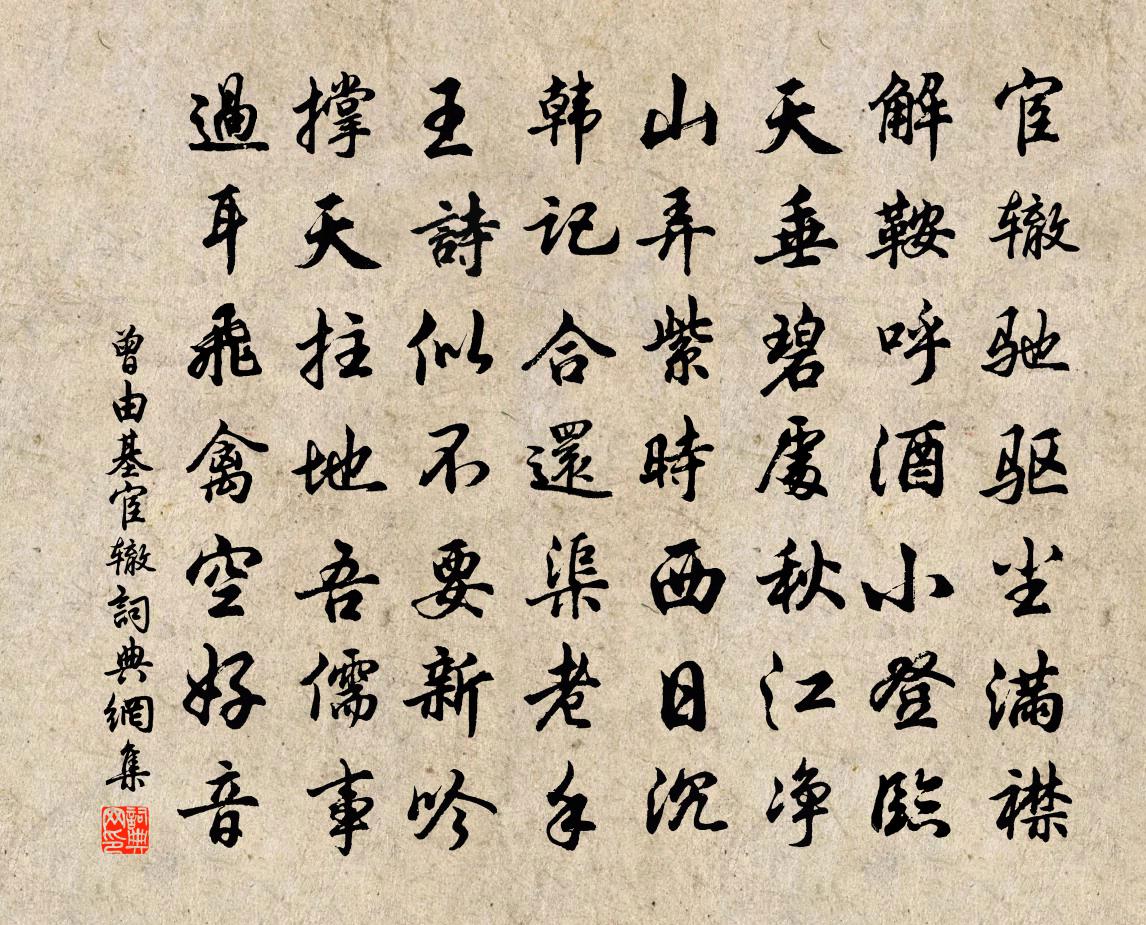 宦辙驰驱尘满襟
解鞍呼酒小登临
天垂碧處秋江净
山弄紫時西日沉
韩記合還渠老手
王詩似不要新吟
撑天拄地吾儒事
過耳飛禽空好音
曾由基宦辙詞典網集
詞典网印